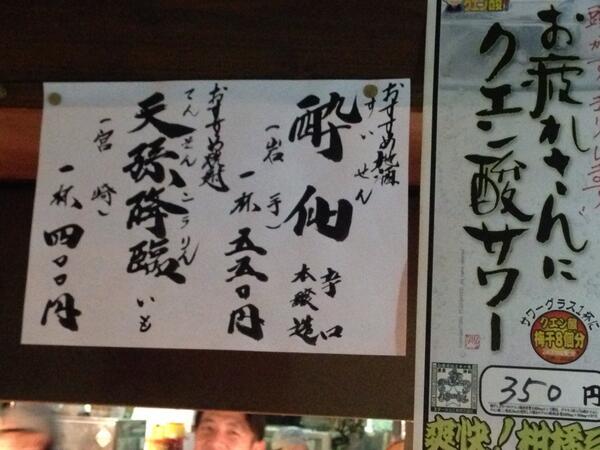 おすすめ地酒
すいせん
酔仙
辛口
本醸造
(岩手)
一杯 五五〇円
おすすめ焼酎
てんそんこうりん
天孫降臨 いも
(宮崎)
一杯 四〇〇円
お疲れさんに
クエン酸サワー
サワーグラス1杯に
クエン酸
梅干8個分
350円
爽快!柑橘